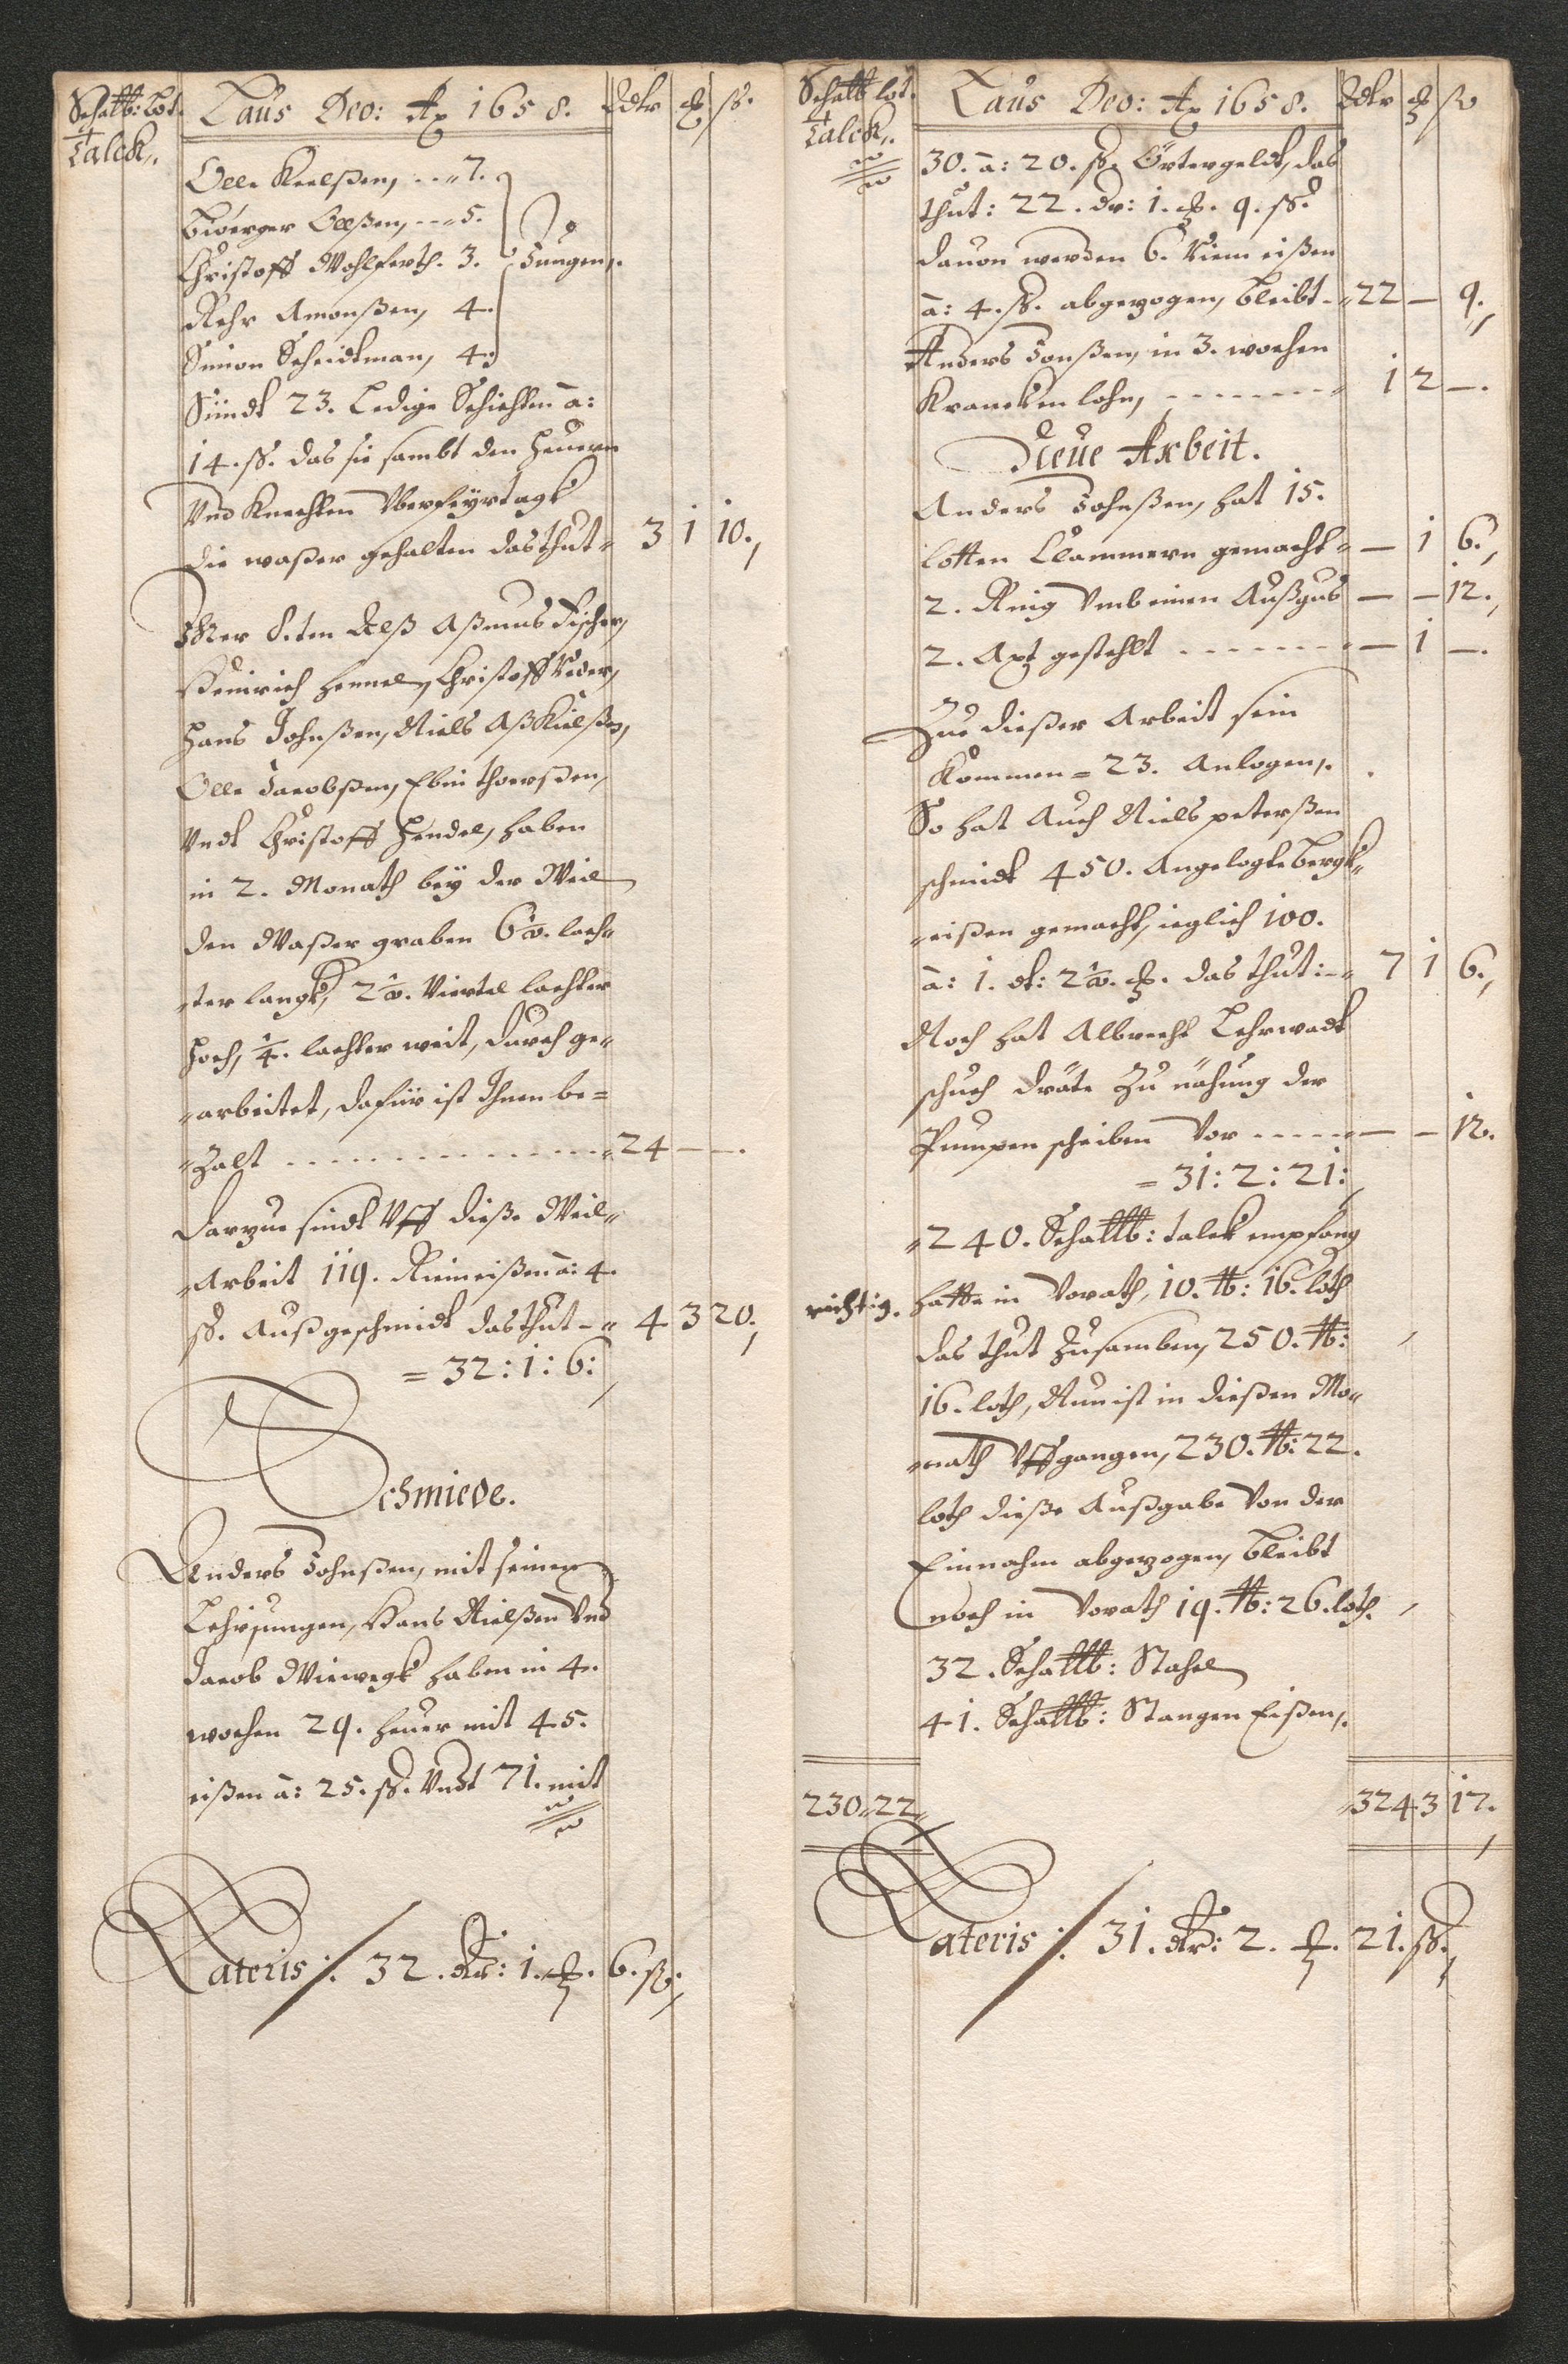 Schal℔: Lot.
Talck,.
Laus Deo: Ao 1658. Rdlr ₰ ß.
Olle Keelßen, --- 7.
Biörger Olßen, --- 5.
Christoff Wohlfarth. 3. Jungen,.
Rehr Amonßen, 4.
Simon Scheidtman, 4.
Sündt 23. Ledige Schichten ā:
14. ß. das sie sambt den Heuern
Vnd Knechten Vber feÿrtagk
die waßer gehalten das thut " 3 1 10.,
Ihrer 8.ten Alß Aßmus Fischer,
Heinrich Hennel, Christoff Veder,
Hans Johnßen, Niels Aßkielßen,
Olle Jacobßen, Ebin Thorßen,
Vndt Christoff Hendel, haben
in 2. Monath beÿ der Weil
den Waßer graben 6 ½. lach"
"ter langk, 2 ½. Viertel lachter
Hoch, ¼. lachter weit, durch ge"
"arbeitet, dafür ist Ihnen be=
"Zalt - - - - - - - - - - " 24 — —.
Darzue sindt Vff dieße Weil"
"Arbeit 119. Riemeißen ā: 4.
ß. Außgeschmidt das thut - " 4 3 20.,
= 32: 1: 6:
Schmiede.
Anders Johnßen, mit seinen
Lehrjungen, Hans Nielßen Vnd
Jacob Wiewegk haben in 4.
wochen 29. Heuer mit 45.
eißen ā: 25. ß. Vndt 71. mit
Lateris ∕. 32. dlr: 1. ₰. 6. ß.,
Schal℔ lot.
Talck,.
Laus Deo: Ao 1658. Rdlr ₰ ß
30. ā: 20. ß. Örtergeldt, das
thut: 22. dr: 1. ₰. 9. ß.
dauon werden 6. Riem eißen
ā: 4. ß. abgezogen, bleibt - " 22 — 9.,
Anders Jonßen, in 3. wochen
Krancken lohn, - - - - - - " 1 2 —.
Neue Arbeit.
Anders Johnßen, hat 15.
lotten Clammern gemacht " — 1 6.,
2. Ring Vmb einen Außgus — — 12.,
2. Axt gestehlt - - - - - - " — 1 —.
Zue dießer Arbeit sein
Kommen = 23. Anlogen,.
So hat Auch Niels peterßen
schmidt 450. Angelogte bergk"
"eißen gemacht, ieglich 100.
ā: 1. dl: 2 ½. ₰. das thut: - " 7 1 6.,
Noch hat Albrecht Lehrwadt
schuch dräte Zu nähung der
Pumpen scheiben Vor - - - - " — — 12.
= 31: 2: 21:
"240. Schal℔: talck empfang
richtig. hatte in Vorath, 10. ℔: 16. loth
das thut Zusamben, 250. ℔:
16. loth, Nun ist in dießen Mo"
"nath Vffgangen, 230. ℔: 22.
loth dieße Außgabe Von der
Einnahm abgezogen, bleibt
noch in Vorath 19. ℔: 26. loth.
32. Schal℔: Stahel
41. Schal℔: Stangen Eißen,.
230 " 22 " " 324 3 17.,
Lateris ∕. 31. dlr: 2. ₰. 21. ß.,